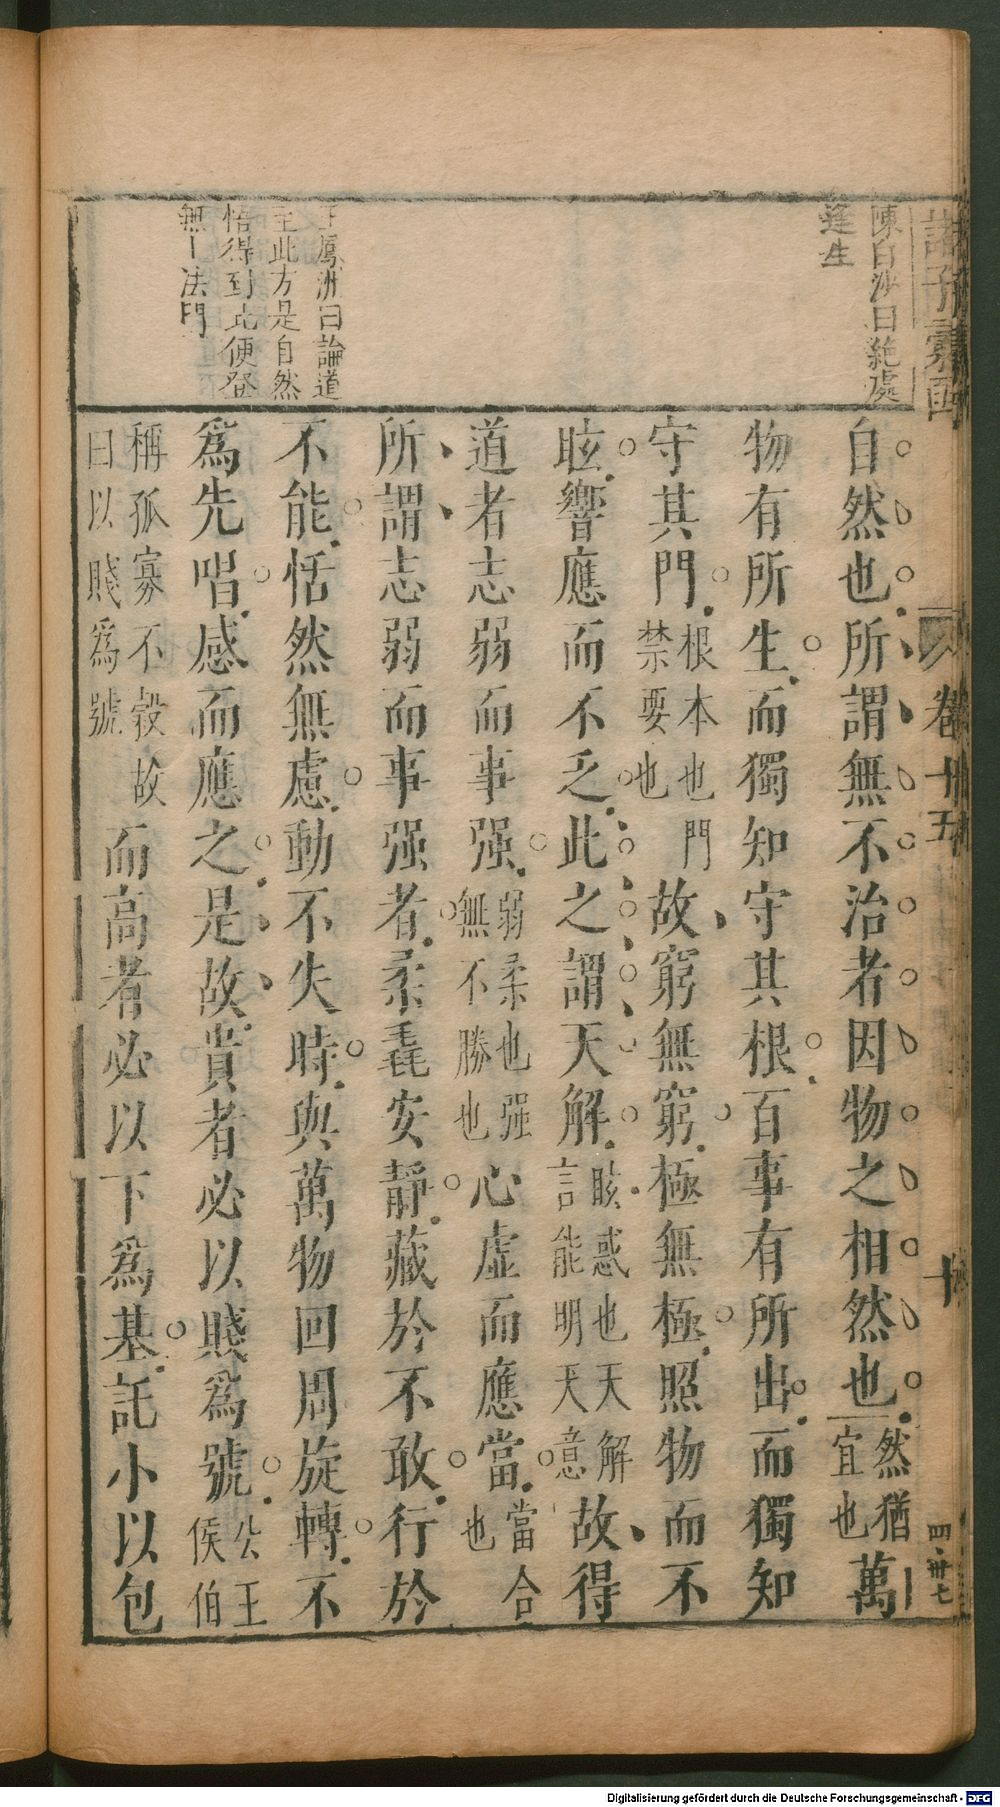 陳白沙曰絶處
逢生
王鳳洲曰論道
至此方是自然
悟得到此便登
無上法門
自然也所謂無不治者因物之相然也然猶宜也萬
物有所生而獨知守其根百事有所出而獨知
守其門根本也門禁要也故窮無窮極無極照物而不
眩響應而不乏此之謂天解眩惑也天解言能明天意故得
道者志弱而事强弱柔也强無不勝也心虛而應當當合也
所謂志弱而事强者柔毳安靜藏於不敢行於
不能恬然無慮動不失時與萬物回周旋轉不
爲先唱感而應之是故貴者必以賤爲號公王侯伯
稱孤寡不穀故曰以賤爲號而高者必以下爲基託小以包
卷十五
十
四·卅七
Digitalisierung gefördert durch die Deutsche Forschungsgemeinschaft - DFG